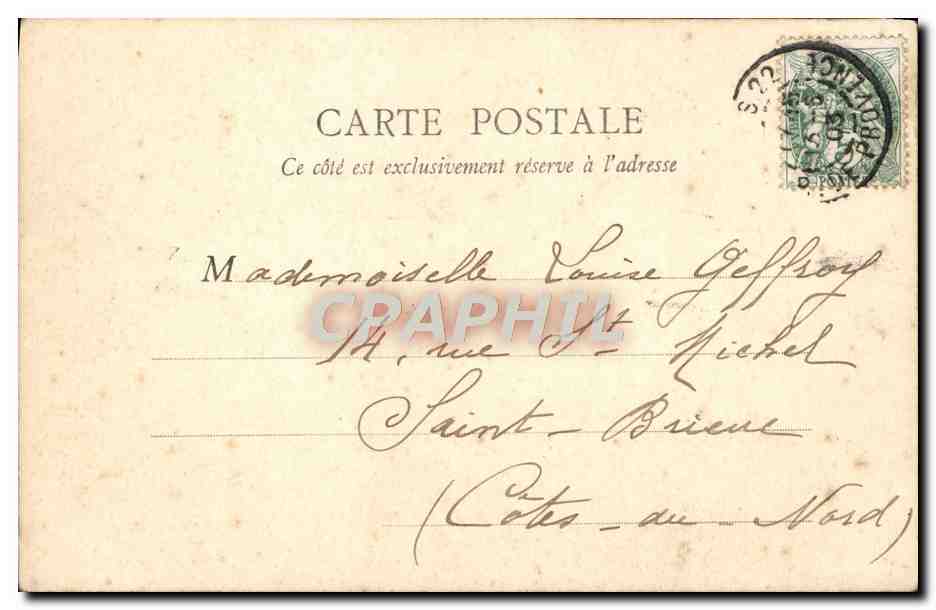 CARTE POSTALE
Ce côté est exclusivement réservé à l'adresse
Mademoiselle Louise Geffroy
CPARHIL
14, rue St Michel
Saint-Brieuc
(Côtes-du-Nord)
PROVENCE
03